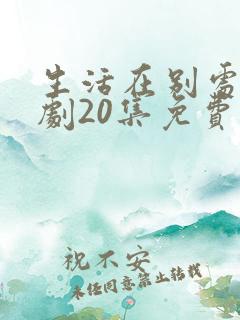 生活在别处
劇20集免費
祝不安
未经同意禁止转载